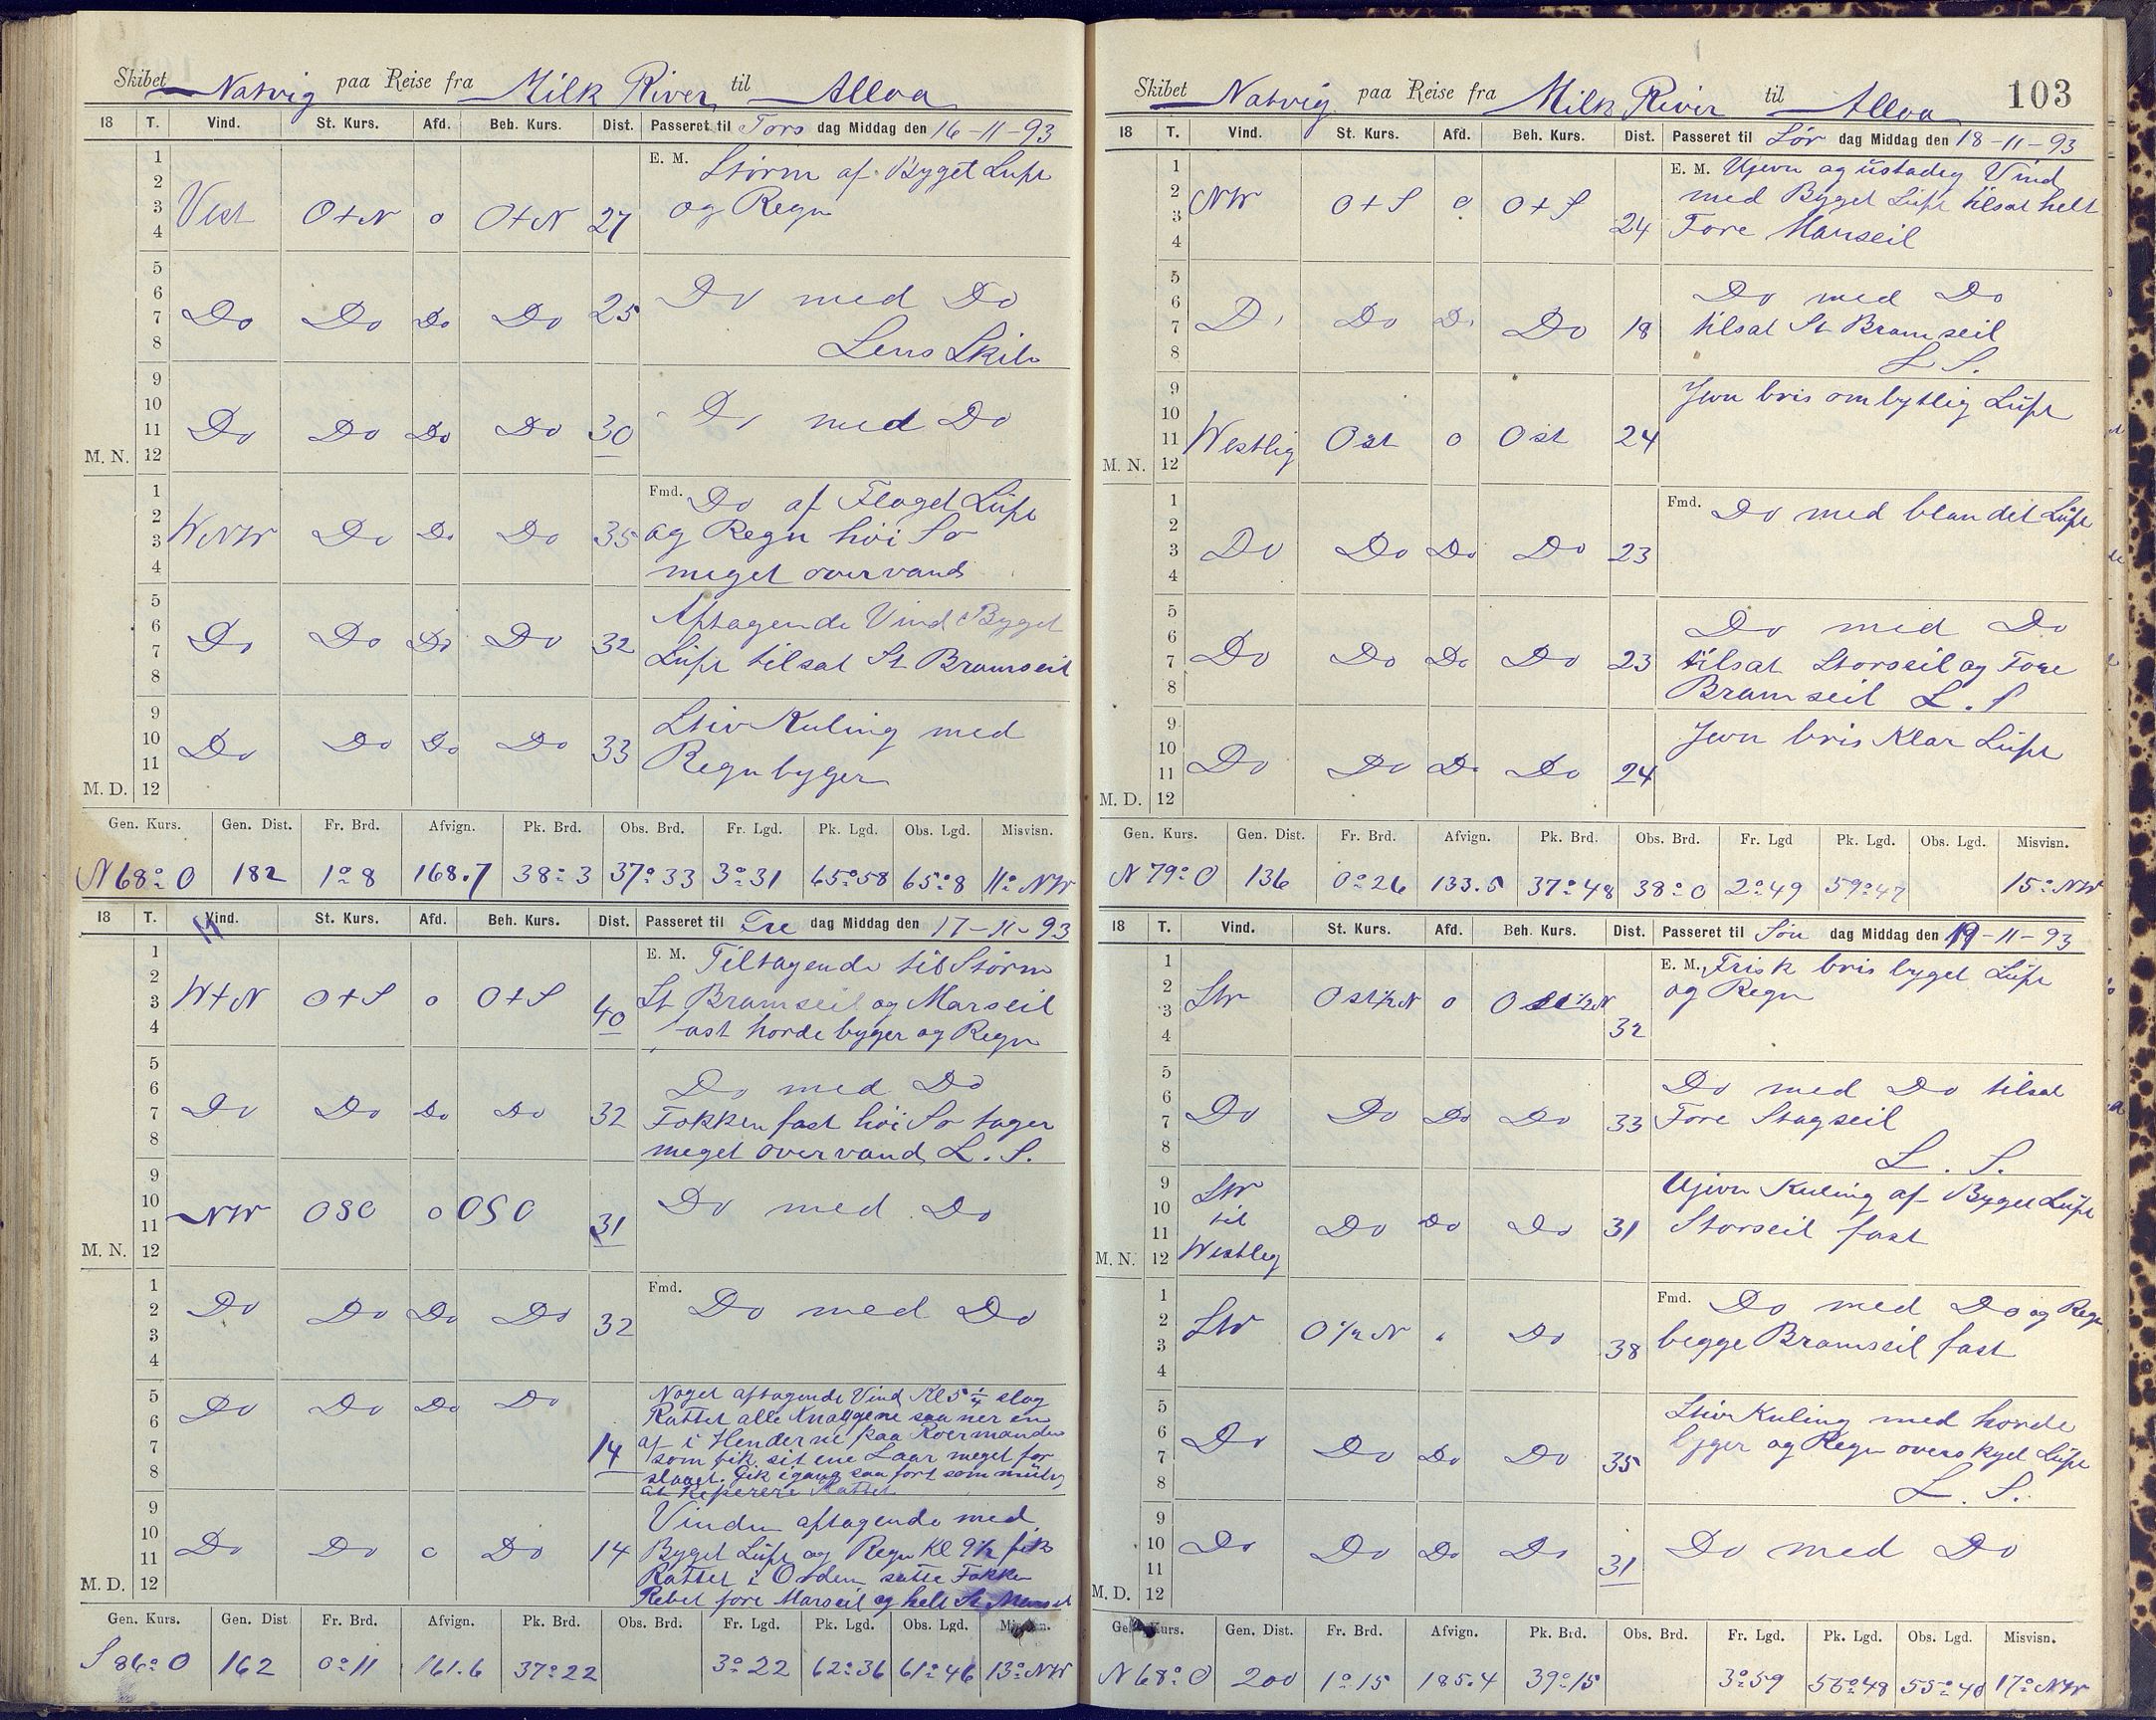 Skibet Natvig paa Reise fra Milk River til Alloa
18 T. Vind. St. Kurs. Afd. Beh. Kurs. Dist. Passeret til Tors dag Middag den 16-11-93
1 2 3 4 Vest O+N o O+N 27 E. M. Storm af Byget Luft
og Regn
5 6 7 8 Do Do Do Do 25 Do med Do
Lens Skib
9 10 11 M. N. 12 Do Do Do Do 30 Do med Do
1 2 3 4 WNW Do Do Do 35 Fmd. Do af Flaget Luft
og Regn høi Sø
meget overvand
5 6 7 8 Do Do Do Do 32 Aftagende Vind Byget
Luft tilsat St Bramseil
9 10 11 M. D. 12 Do Do Do Do 33 Stiv Kuling med
Regnbyger
Gen. Kurs. Gen. Dist. Fr. Brd. Afvign. Pk. Brd. Obs. Brd. Fr. Lgd. Pk. Lgd. Obs. Lgd. Misvisn.
N 68° O 182 1° 8 168.7 38° 3 37° 33 3° 31 65° 58 65° 8 11° NW
18 T. Vind. St. Kurs. Afd. Beh. Kurs. Dist. Passeret til Fre dag Middag den 17-11-93
1 2 3 4 W+N O+S o O+S 40 E. M. Tiltagende til Storm
St Bramseil og Marseil
fast horde byger og Regn
5 6 7 8 Do Do Do Do 32 Do med Do
Fokken fast høi Sø tager
meget overvand L. S.
9 10 11 M. N. 12 NW OSO o OSO 31 Do med Do
1 2 3 4 Do Do Do Do 32 Fmd. Do med Do
5 6 7 8 Do Do Do Do 14 Noget aftagende Vind Kl 5 1/4 slog
Rattet alle Knaggene saa ner en
af i Henderne paa Roermanden
som fik sit ene Laar meget for
slaaet. Gik igang saa fort som mulig
at Reperere Rattet
9 10 11 M. D. 12 Do Do o Do 14 Vinden aftagende med
Byget Luft og Regn Kl 9 1/2 fik
Rattet i Orden satte Fokken
Rebet fore Marseil og helt St Marseil
Gen. Kurs. Gen. Dist Fr. Brd. Afvign. Pk. Brd. Obs. Brd. Fr. Lgd. Pk. Lgd. Obs. Lgd. Misvisn.
S 86° O 162 0° 11 161.6 37° 22 3° 22 62° 36 61° 46 13° NW
Skibet Natvig paa Reise fra Milk River til Alloa 103
18 T. Vind. St. Kurs. Afd. Beh. Kurs. Dist. Passeret til Lør dag Middag den 18-11-93
1 2 3 4 NW O+S o O+S 24 E. M. Ujevn og ustadig Vind
med Byget Luft tilsat helt
Fore Marseil
5 6 7 8 Do Do Do Do 18 Do med Do
tilsat St Bramseil
L S.
9 10 11 M. N. 12 Westlig Ost o Ost 24 Jevn bris ombytlig Luft
1 2 3 4 Do Do Do Do 23 Fmd. Do med blandet Luft
5 6 7 8 Do Do Do Do 23 Do med Do
tilsat Storseil og Fore
Bramseil L. S
9 10 11 M. D. 12 Do Do Do Do 24 Jevn bris Klar Luft
Gen. Kurs. Gen. Dist. Fr. Brd. Afvign. Pk. Brd. Obs. Brd. Fr. Lgd Pk. Lgd. Obs. Lgd. Misvisn.
N 79° O 136 0° 26 133.5 37° 48 38° 0 2° 49 59° 47 15° NW
18 T. Vind. St. Kurs. Afd. Beh. Kurs. Dist. Passeret til Søn dag Middag den 19-11-93
1 2 3 4 SW Ost 1/2 N o Ost 1/2 N 32 E. M. Frisk bris byget Luft
og Regn
5 6 7 8 Do Do Do Do 33 Do med Do tilsat
Fore Stagseil
L. S.
9 10 11 M. N. 12 SW til Westlig Do Do Do 31 Ujevn Kuling af Byget Luft
Storseil fast
1 2 3 4 SW O 1/2 N Do 38 Fmd. Do med Do og Regn
begge Bramseil fast
5 6 7 8 Do Do Do Do 35 Stiv Kuling med horde
byger og Regn overskyet Luft
L. S.
9 10 11 M. D. 12 Do Do Do Do 31 Do med Do
Gen. Kurs. Gen. Dist. Fr. Brd. Afvign. Pk. Brd. Obs. Brd. Fr. Lgd. Pk. Lgd. Obs. Lgd. Misvisn.
N 68° O 200 1° 15 185.4 39° 15 3° 59 55° 40 17° NW